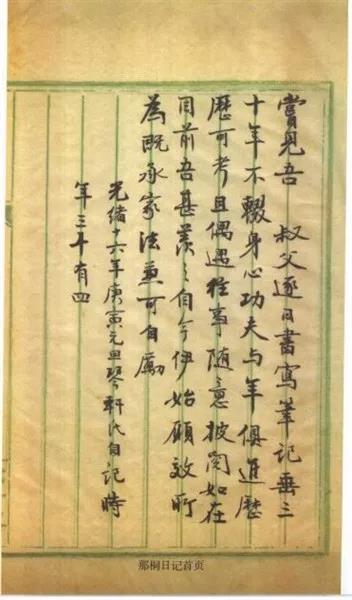 嘗見吾　叔父逐日書寫筆記垂三
十年不輟身心功夫與年俱進歷
歷可考且偶遇往事隨意披閱如在
目前吾甚羨之自今伊始願效所
為既承家法兼可自勵
光緒十六年庚寅元旦琴軒氏自記時
年三十有四
那桐日记首页